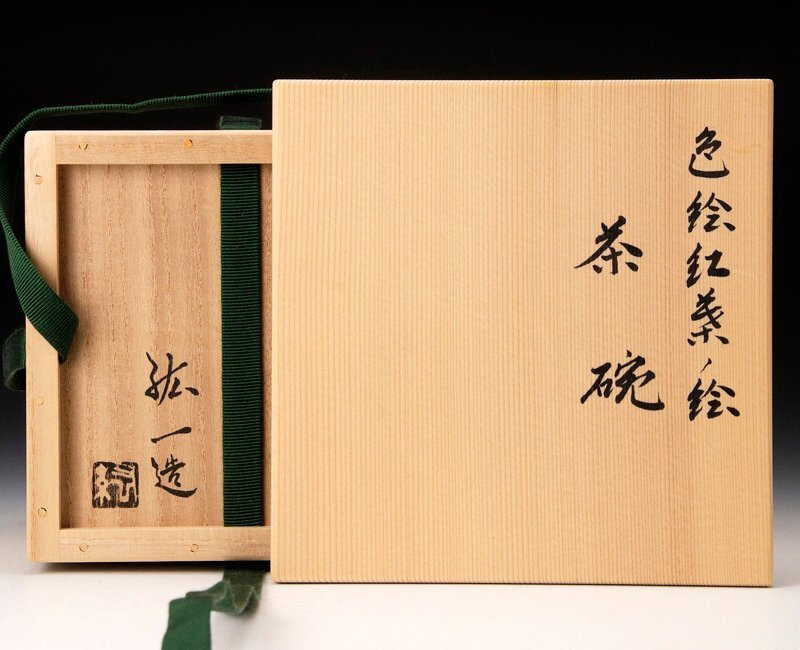 色絵紅葉ノ絵
茶碗
紘一造